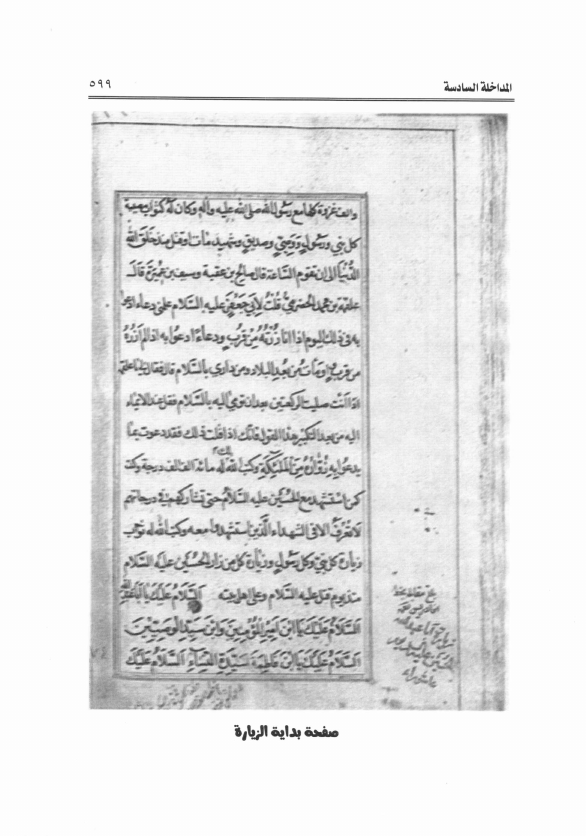 المداخلة السادسة ٥٩٩
والف غزوة كلها مع رسول الله صلى الله عليه وآله وكان له ثواب مصيبة
كل نبي ورسول ووصي وصديق وشهيد مات او قتل منذ خلق الله
الدنيا الى ان تقوم الساعة قال صالح بن عقبة وسيف بن عميرة قال
علقمة بن محمد الحضرمي قلت لابي جعفر عليه السلام علمني دعاء ادعوا
به في ذلك اليوم اذا انا زرته من قرب ودعاء ادعوا به اذا لم ازره
من قرب و من بعد البلاد ومن داري بالسلام قال فقال لي يا علقمة
اذا انت صليت الركعتين بعد ان تومي اليه بالسلام فقل عند الايماء
اليه من بعد التكبير هذا القول فانك اذا قلت ذلك فقد دعوت بما
يدعوا به زواره من الملائكة وكتب الله لك مائة الف الف درجة وكنت
كمن استشهد مع الحسين عليه السلام حتى تشاركهم في درجاتهم
لا تعرف الا في الشهداء الذين استشهدوا معه وكتب الله له ثواب
زيارة كل نبي وكل رسول وزيارة كل من زار الحسين عليه السلام
منذ يوم قتل عليه السلام وعلى اهل بيته السلام عليك يا ابا عبد الله
السلام عليك يا ابن امير المؤمنين وابن سيد الوصيين
السلام عليك يا ابن فاطمة سيدة النساء السلام عليك
صفحة بداية الزيارة